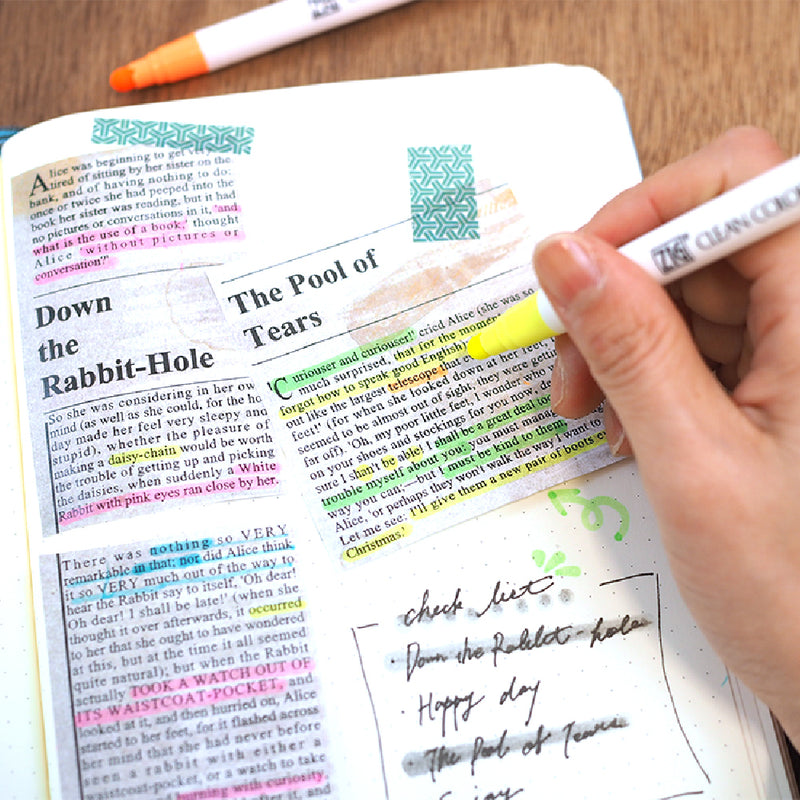 Alice was beginning to get very
tired of sitting by her sister on the
bank, and of having nothing to do:
once or twice she had peeped into the
book her sister was reading, but it had
no pictures or conversations in it, 'and
what is the use of a book,' thought
Alice 'without pictures or
conversation?'
Down
the
Rabbit-Hole
So she was considering in her ow
mind (as well as she could, for the ho
day made her feel very sleepy and
stupid), whether the pleasure of
making a daisy-chain would be worth
the trouble of getting up and picking
the daisies, when suddenly a White
Rabbit with pink eyes ran close by her.
There was nothing so VERY
remarkable in that; nor did Alice think
it so VERY much out of the way to
hear the Rabbit say to itself, 'Oh dear!
Oh dear! I shall be late!' (when she
thought it over afterwards, it occurred
to her that she ought to have wondered
at this, but at the time it all seemed
quite natural); but when the Rabbit
actually TOOK A WATCH OUT OF
ITS WAISTCOAT-POCKET, and
looked at it, and then hurried on, Alice
started to her feet, for it flashed across
her mind that she had never before
seen a rabbit with either a
waistcoat-pocket, or a watch to take
burning with curiosity,
after it, and
The Pool of
Tears
'Curiouser and curiouser!' cried Alice (she was so
much surprised, that for the momen
forgot how to speak good English)
out like the largest telescope that
feet!' (for when she looked down at her feet
seemed to be almost out of sight, they were getting
far off). 'Oh, my poor little feet, I wonder who
on your shoes and stockings for you now, de
sure I shan't be able! I shall be a great deal too
trouble myself about you: you must manage
way you can;—but I must be kind to them,
Alice, 'or perhaps they won't walk the way I want to
Let me see: I'll give them a new pair of boots e
Christmas.'
ZIG CLEAN COLOR
check list
· Down the Rabbit-hole
· Happy day
· The Pool of Tears